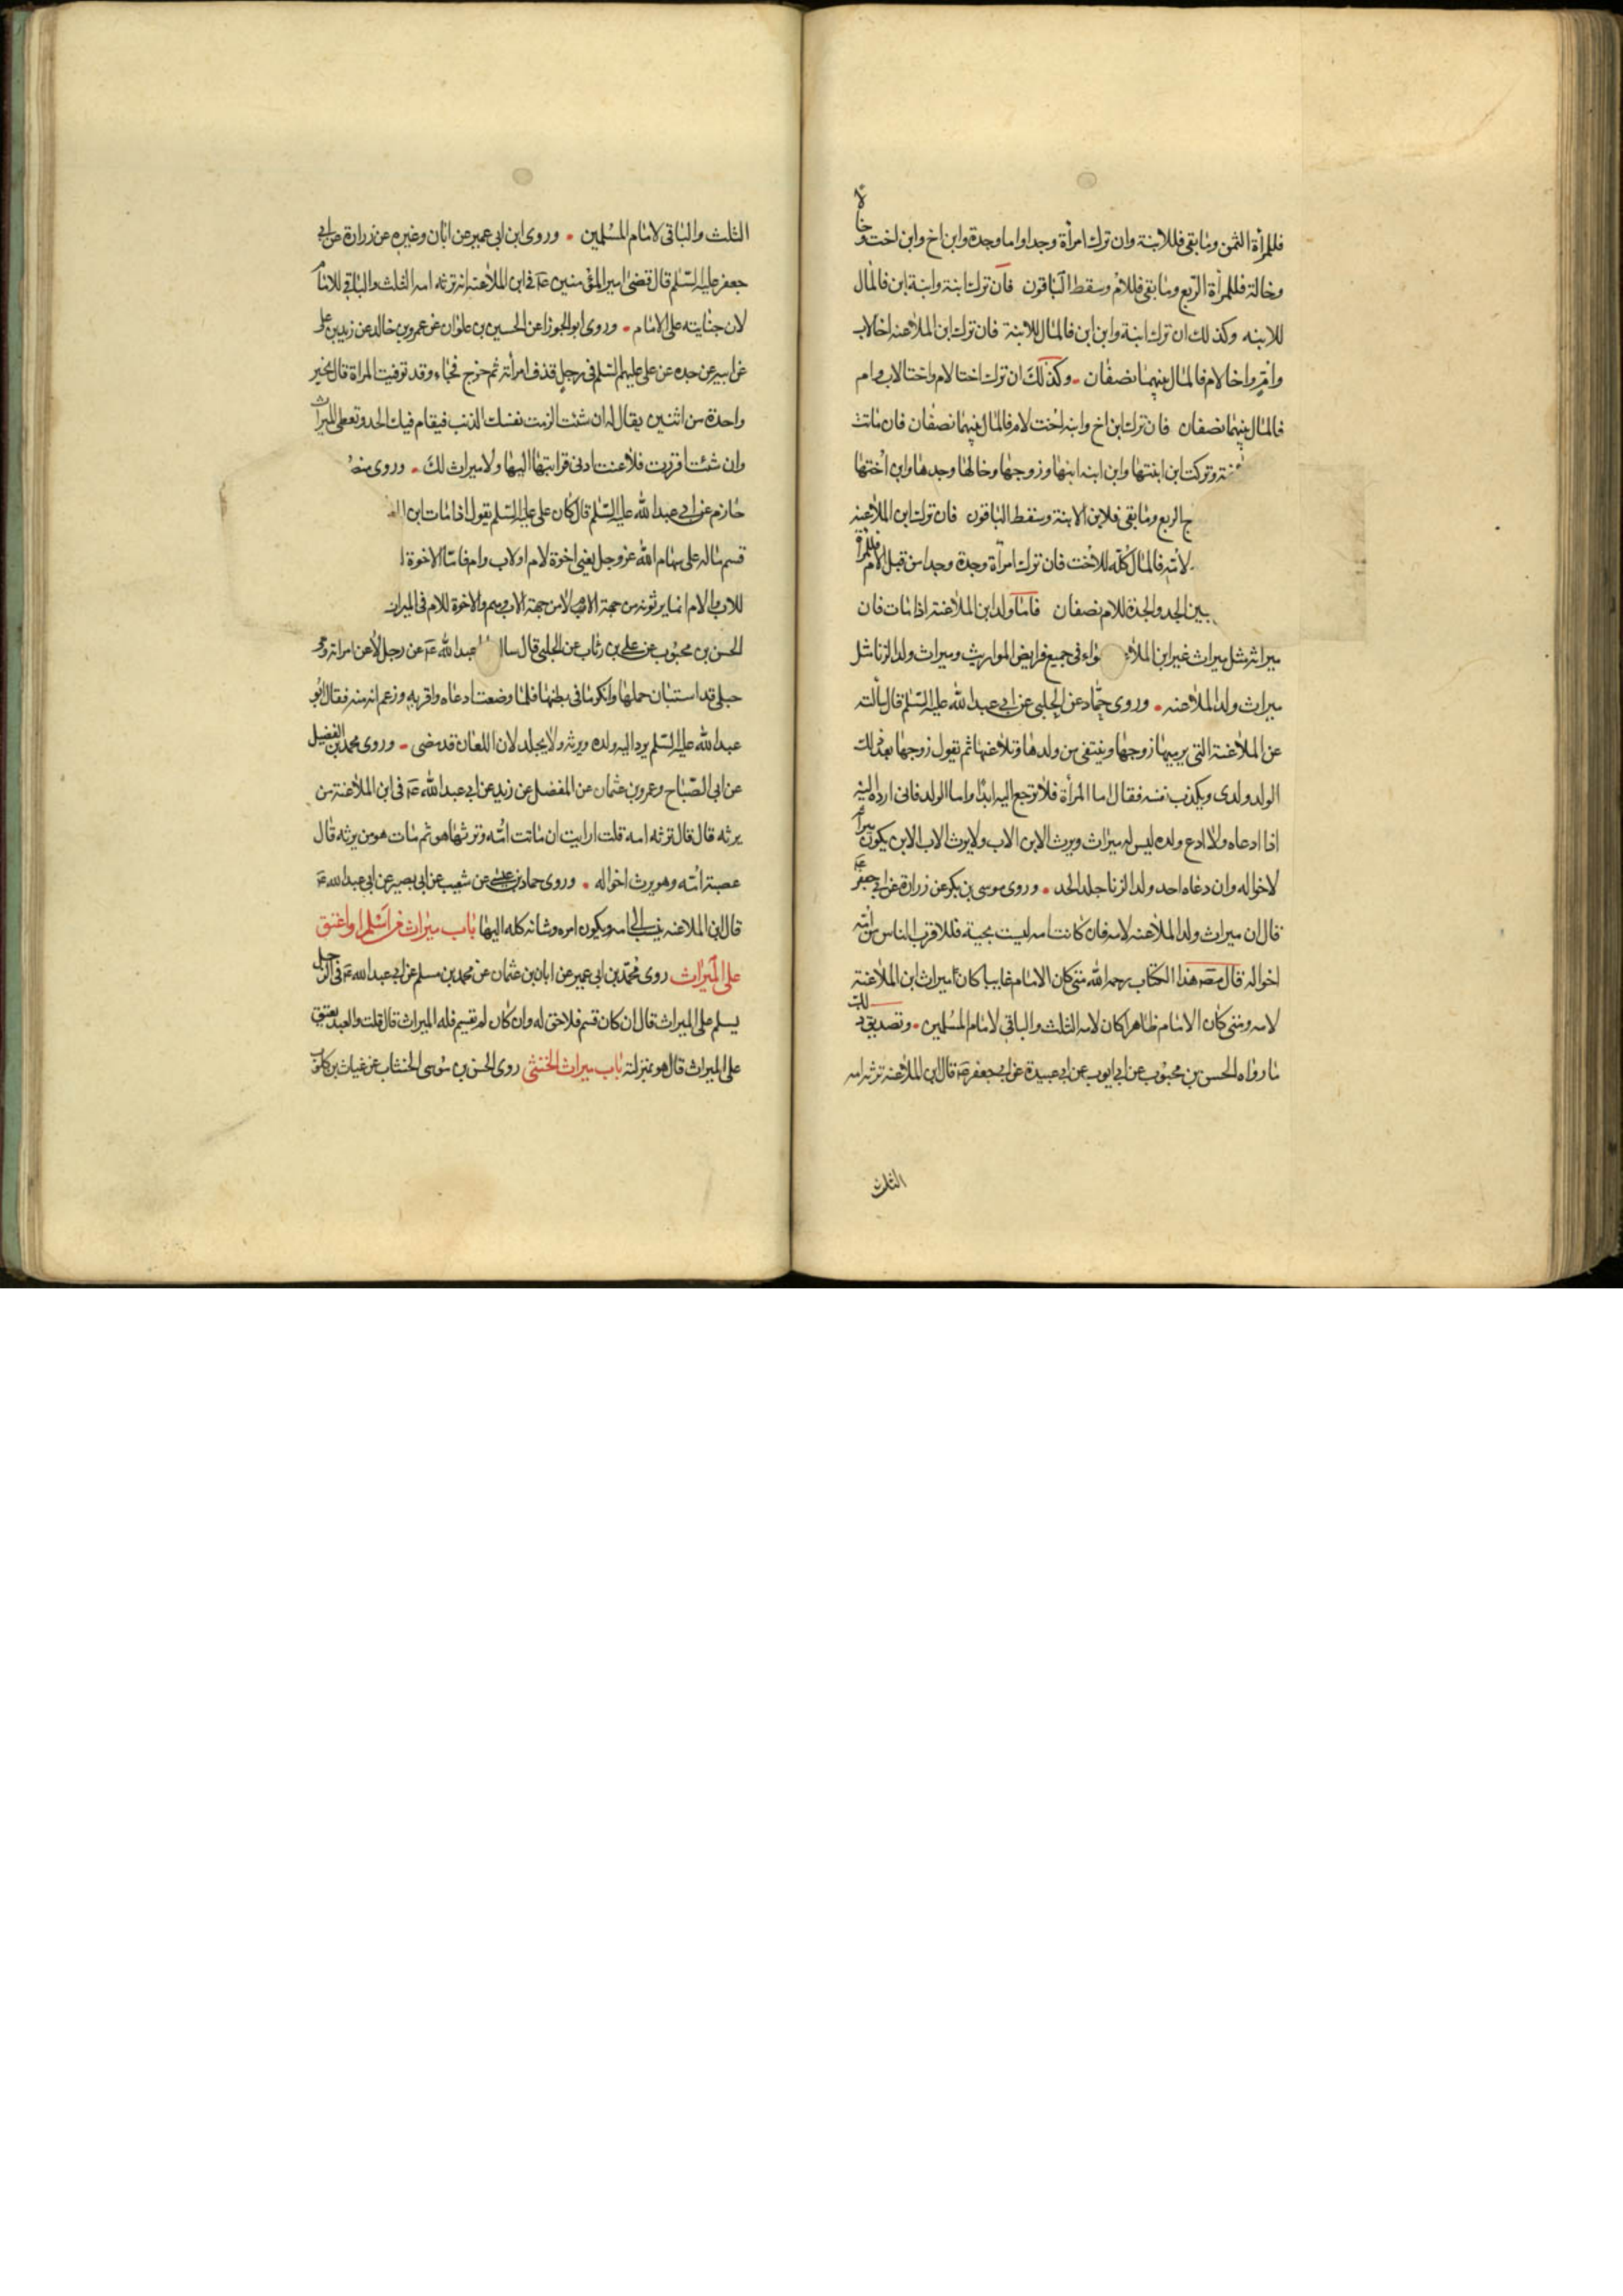 فللمرأة الثمن وما بقي فللابنة وان ترك امرأة وجدا واما وجدة وابن اخ وابن اخت وخالا
وخالة فللمرأة الربع وما بقي فللام وسقط الباقون فان ترك ابنة وابنة ابن فالمال
للابنه وكذلك ان ترك ابنة وابن ابن فالمال للابنة فان ترك ابن الملاعنه اخا لاب
وام واخا لام فالمال بينهما نصفان وكذلك ان ترك اختا لام واختا لاب وام
فالمال بينهما نصفان فان ترك ابن اخ وابنه اخت لام فالمال بينهما نصفان فان ماتت
وتركت ابن ابنتها وابن ابنه ابنها وزوجها وخالها وجدها وابن اختها
الربع وما بقي فلابن الابنة وسقط الباقون فان ترك ابن الملاعنه
لامه فالمال كله للاخت فان ترك امرأة وجدة وجدا من قبل الام فللمرأة
بين الجد والجدة للام نصفان فاما ولد ابن الملاعنة اذا مات فان
ميراثه مثل ميراث غير ابن الملا في جميع فرايض المواريث وميراث ولد الزنا مثل
ميراث ولد الملاعنه وروى حماد عن الحلبي عن ابي عبد الله عليه السلم قال سألته
عن الملاعنة التي يرميها زوجها وينتفي من ولدها وتلاعنها ثم يقول زوجها بعد ذلك
الولد ولدى ويكذب نفسه فقال اما المرأة فلا ترجع اليه ابدا واما الولد فاني ارده اليه
اذا ادعاه ولا ادع ولده ليس له ميراث ويرث الابن الاب ولا يرث الاب الابن يكون ميراثه
لاخواله وان دعاه احد ولد الزنا جلد الحد وروى موسى بن بكر عن زرارة عن ابي جعفر ع
قال ان ميراث ولد الملاعنه لامه فان كانت امه ليست بحية فللاقرب الناس من امه
اخواله قال مصنف هذا الكتاب رحمه الله متى كان الامام غايبا كان ميراث ابن الملاعنة
لامه ومتى كان الامام ظاهرا كان لامه الثلث والباقي لامام المسلمين وتصديق ذلك
ما رواه الحسن بن محبوب عن ابي ايوب عن ابي عبيدة عن ابي جعفر ع قال ابن الملاعنه ترثه امه
الثلث
الثلث والباقي لامام المسلمين وروى ابن ابي عمير عن ابان وغيره عن زرارة عن ابي
جعفر عليه السلم قال قضى امير المؤمنين ع في ابن الملاعنه انه ترثه امه الثلث والباقي للامام
لان جنايته على الامام وروى ابو الجوزا عن الحسين بن علوان عن عمرو بن خالد عن زيد بن على
عن ابيه عن جده عن على عليهم السلم في رجل قذف امرأته ثم خرج فجاء وقد توفيت المراة قال يخير
واحدة من اثنين يقال له ان شئت الزمت نفسك الذنب فيقام فيك الحد وتعطى الميراث
وان شئت اقررت فلاعنت ادنى قرابتها اليها ولا ميراث لك وروى
حازم عن ابي عبد الله عليه السلم قال كان علي عليه السلم يقول اذا مات ابن
قسم ماله على سهام الله عز وجل يعني اخوة لام او لاب وام فاما الاخوة
للاب والام انما يرثونه من جهة الام لا من جهة الاب وهم والاخوة للام في الميراث
الحسن بن محبوب عن علي بن رئاب عن الحلبي قال عبد الله ع عن رجل لاعن امراته وهي
حبلى قد استبان حملها وانكر ما في بطنها فلما وضعت ادعاه واقر به وزعم انه منه فقال ابو
عبد الله عليه السلم يرد اليه ولده ويرثه ولا يجلد لان اللعان قد مضى وروى محمد بن الفضيل
عن ابي الصباح وعمرو بن عثمان عن المفضل عن زيد عن ابي عبد الله ع في ابن الملاعنة من
يرثه قال قال ترثه امه قلت ارايت ان ماتت امه وورثها هو ثم مات هو من يرثه قال
عصبة امه وهو يرث اخواله وروى حماد بن عيسى عن شعيب عن ابي بصير عن ابي عبد الله ع
قال ابن الملاعنه ينسب الى امه ويكون امره وشانه كله اليها باب ميراث من اسلم او اعتق
على الميراث روى محمد بن ابي عمير عن ابان بن عثمان عن محمد بن مسلم عن ابي عبد الله ع في الرجل
يسلم على الميراث قال ان كان قسم فلا حق له وان كان لم تقسم فله الميراث قال قلت والعبد يعتق
على الميراث قال هو بمنزلته باب ميراث الخنثى روى الحسن بن موسى الخشاب عن غياث بن كلوب